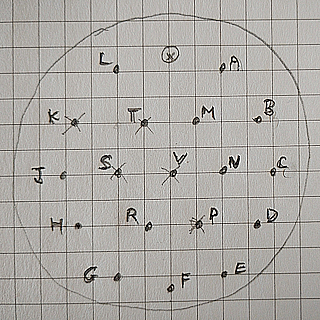 L A
K T M B
J S V N C
H R P D
G F E